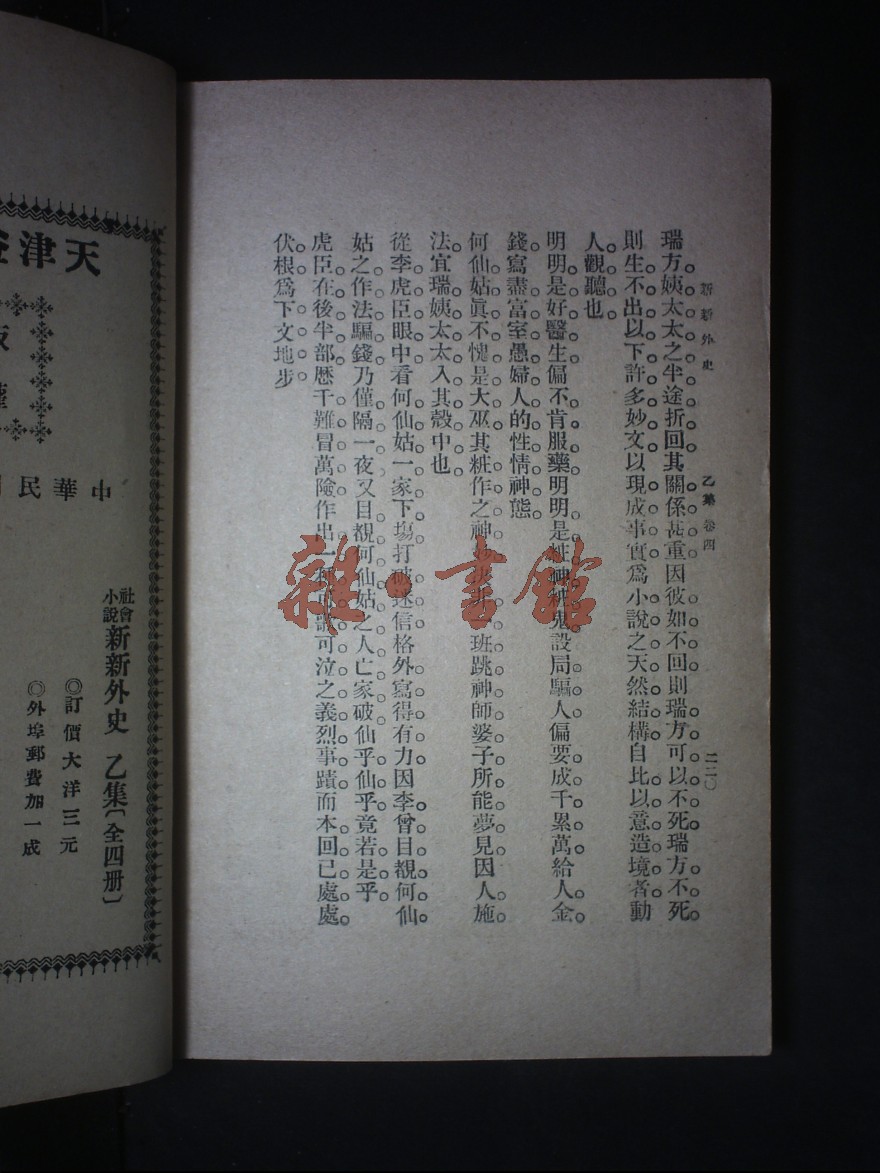 新新外史 乙集 卷四 二二〇
瑞方姨太太之半途折回其關係甚重因彼如不回則瑞方可以不死瑞方不死
則生不出以下許多妙文以現成事實爲小說之天然結構自比以意造境者動
人觀聽也
明明是好醫生偏不肯服藥明明是粧神粧鬼設局騙人偏要成千累萬給人金
錢寫盡富室愚婦人的性情神態
何仙姑眞不愧是大巫其粧作之神妙決非一班跳神師婆子所能夢見因人施
法宜瑞姨太太入其殼中也
從李虎臣眼中看何仙姑一家下塲打破迷信格外寫得有力因李曾目覩何仙
姑之作法騙錢乃僅隔一夜又目覩何仙姑之人亡家破仙乎仙乎竟若是乎
虎臣在後半部歷千難冒萬險作出一種可歌可泣之義烈事蹟而本回已處處
伏根爲下文地步
雜·書館
天津
中華民
社會小說 新新外史 乙集〔全四册〕
◎訂價大洋三元
◎外埠郵費加一成